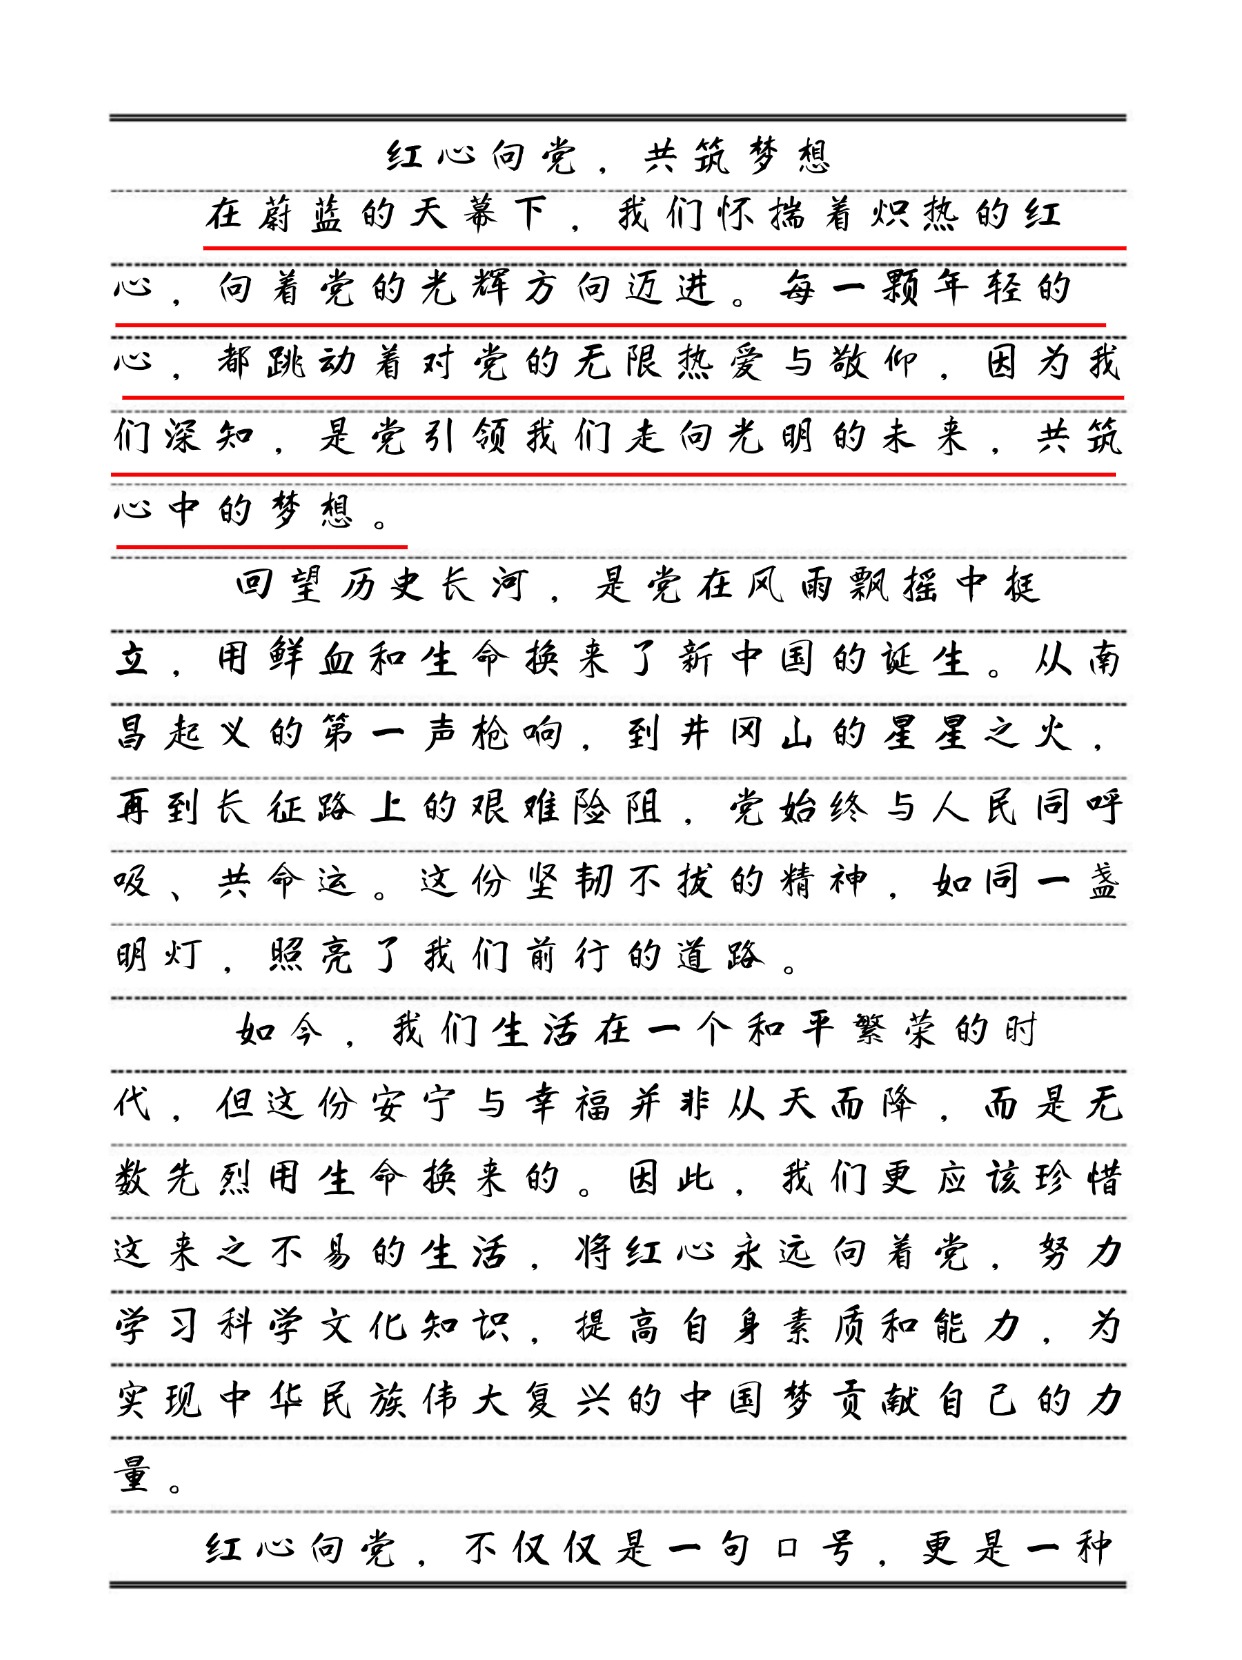 红心向党，共筑梦想
在蔚蓝的天幕下，我们怀揣着炽热的红
心，向着党的光辉方向迈进。每一颗年轻的
心，都跳动着对党的无限热爱与敬仰，因为我
们深知，是党引领我们走向光明的未来，共筑
心中的梦想。
回望历史长河，是党在风雨飘摇中挺
立，用鲜血和生命换来了新中国的诞生。从南
昌起义的第一声枪响，到井冈山的星星之火，
再到长征路上的艰难险阻，党始终与人民同呼
吸、共命运。这份坚韧不拔的精神，如同一盏
明灯，照亮了我们前行的道路。
如今，我们生活在一个和平繁荣的时
代，但这份安宁与幸福并非从天而降，而是无
数先烈用生命换来的。因此，我们更应该珍惜
这来之不易的生活，将红心永远向着党，努力
学习科学文化知识，提高自身素质和能力，为
实现中华民族伟大复兴的中国梦贡献自己的力
量。
红心向党，不仅仅是一句口号，更是一种